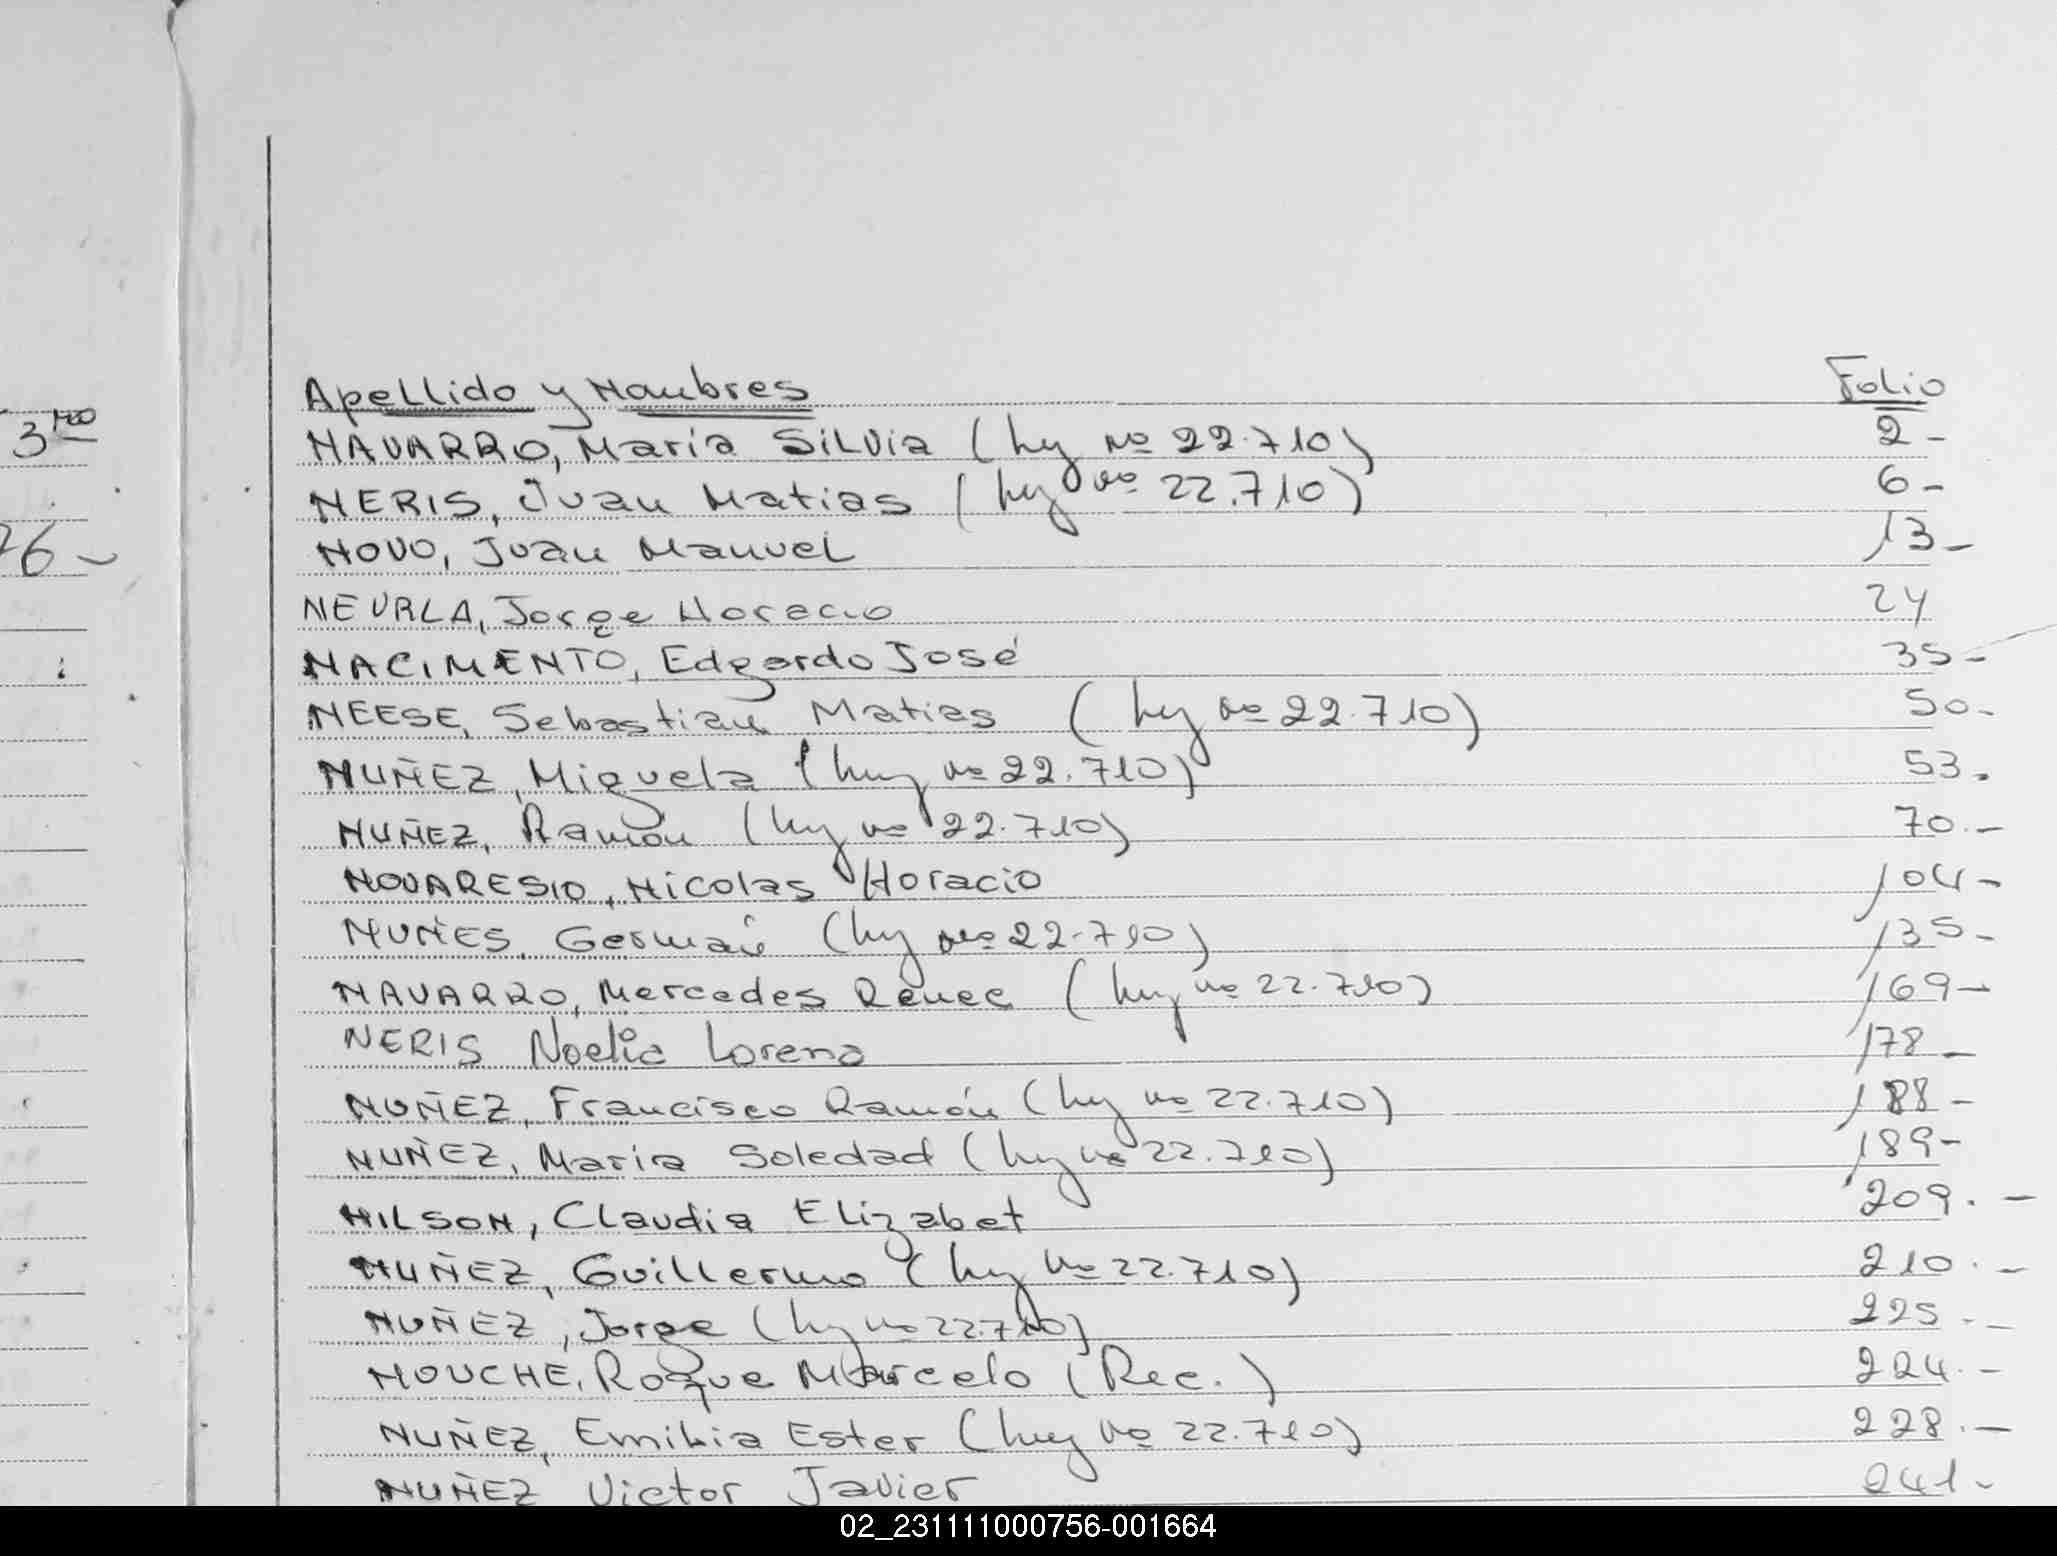 Apellido y Nombres Folio
3 no
NAVARRO, Maria Silvia (ley no 22.710) 2-
NERIS, Juan Matias (ley no 22.710) 6-
76-
NOVO, Juan Manuel 13-
NEURLA, Jorge Horacio 24
NACIMENTO, Edgardo José 35-
NEESE, Sebastian Matias (ley no 22.710) 50-
NUÑEZ, Miguela (ley no 22.710) 53.
NUÑEZ, Ramón (ley no 22.710) 70.-
NOVARESIO, Nicolas Horacio 104-
NUÑES, Germán (ley no 22.710) 135-
NAVARRO, Mercedes Renee (ley no 22.710) 169-
NERIS Noelia Lorena 178-
NUÑEZ, Francisco Ramón (ley no 22.710) 188-
NUÑEZ, Maria Soledad (ley no 22.710) 189-
NILSON, Claudia Elizabet 209.-
NUÑEZ, Guillermo (ley no 22.710) 210.-
NUÑEZ, Jorge (ley no 22.710) 225.-
NOUCHE, Roque Marcelo (Rec.) 224.-
NUÑEZ, Emilia Ester (ley no 22.710) 228.-
NUÑEZ Victor Javier 241-
02_231111000756-001664